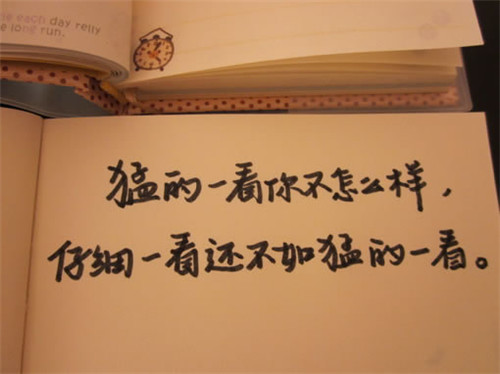 e each day relly
e lone run.
猛的一看你不怎么样，
仔细一看还不如猛的一看。